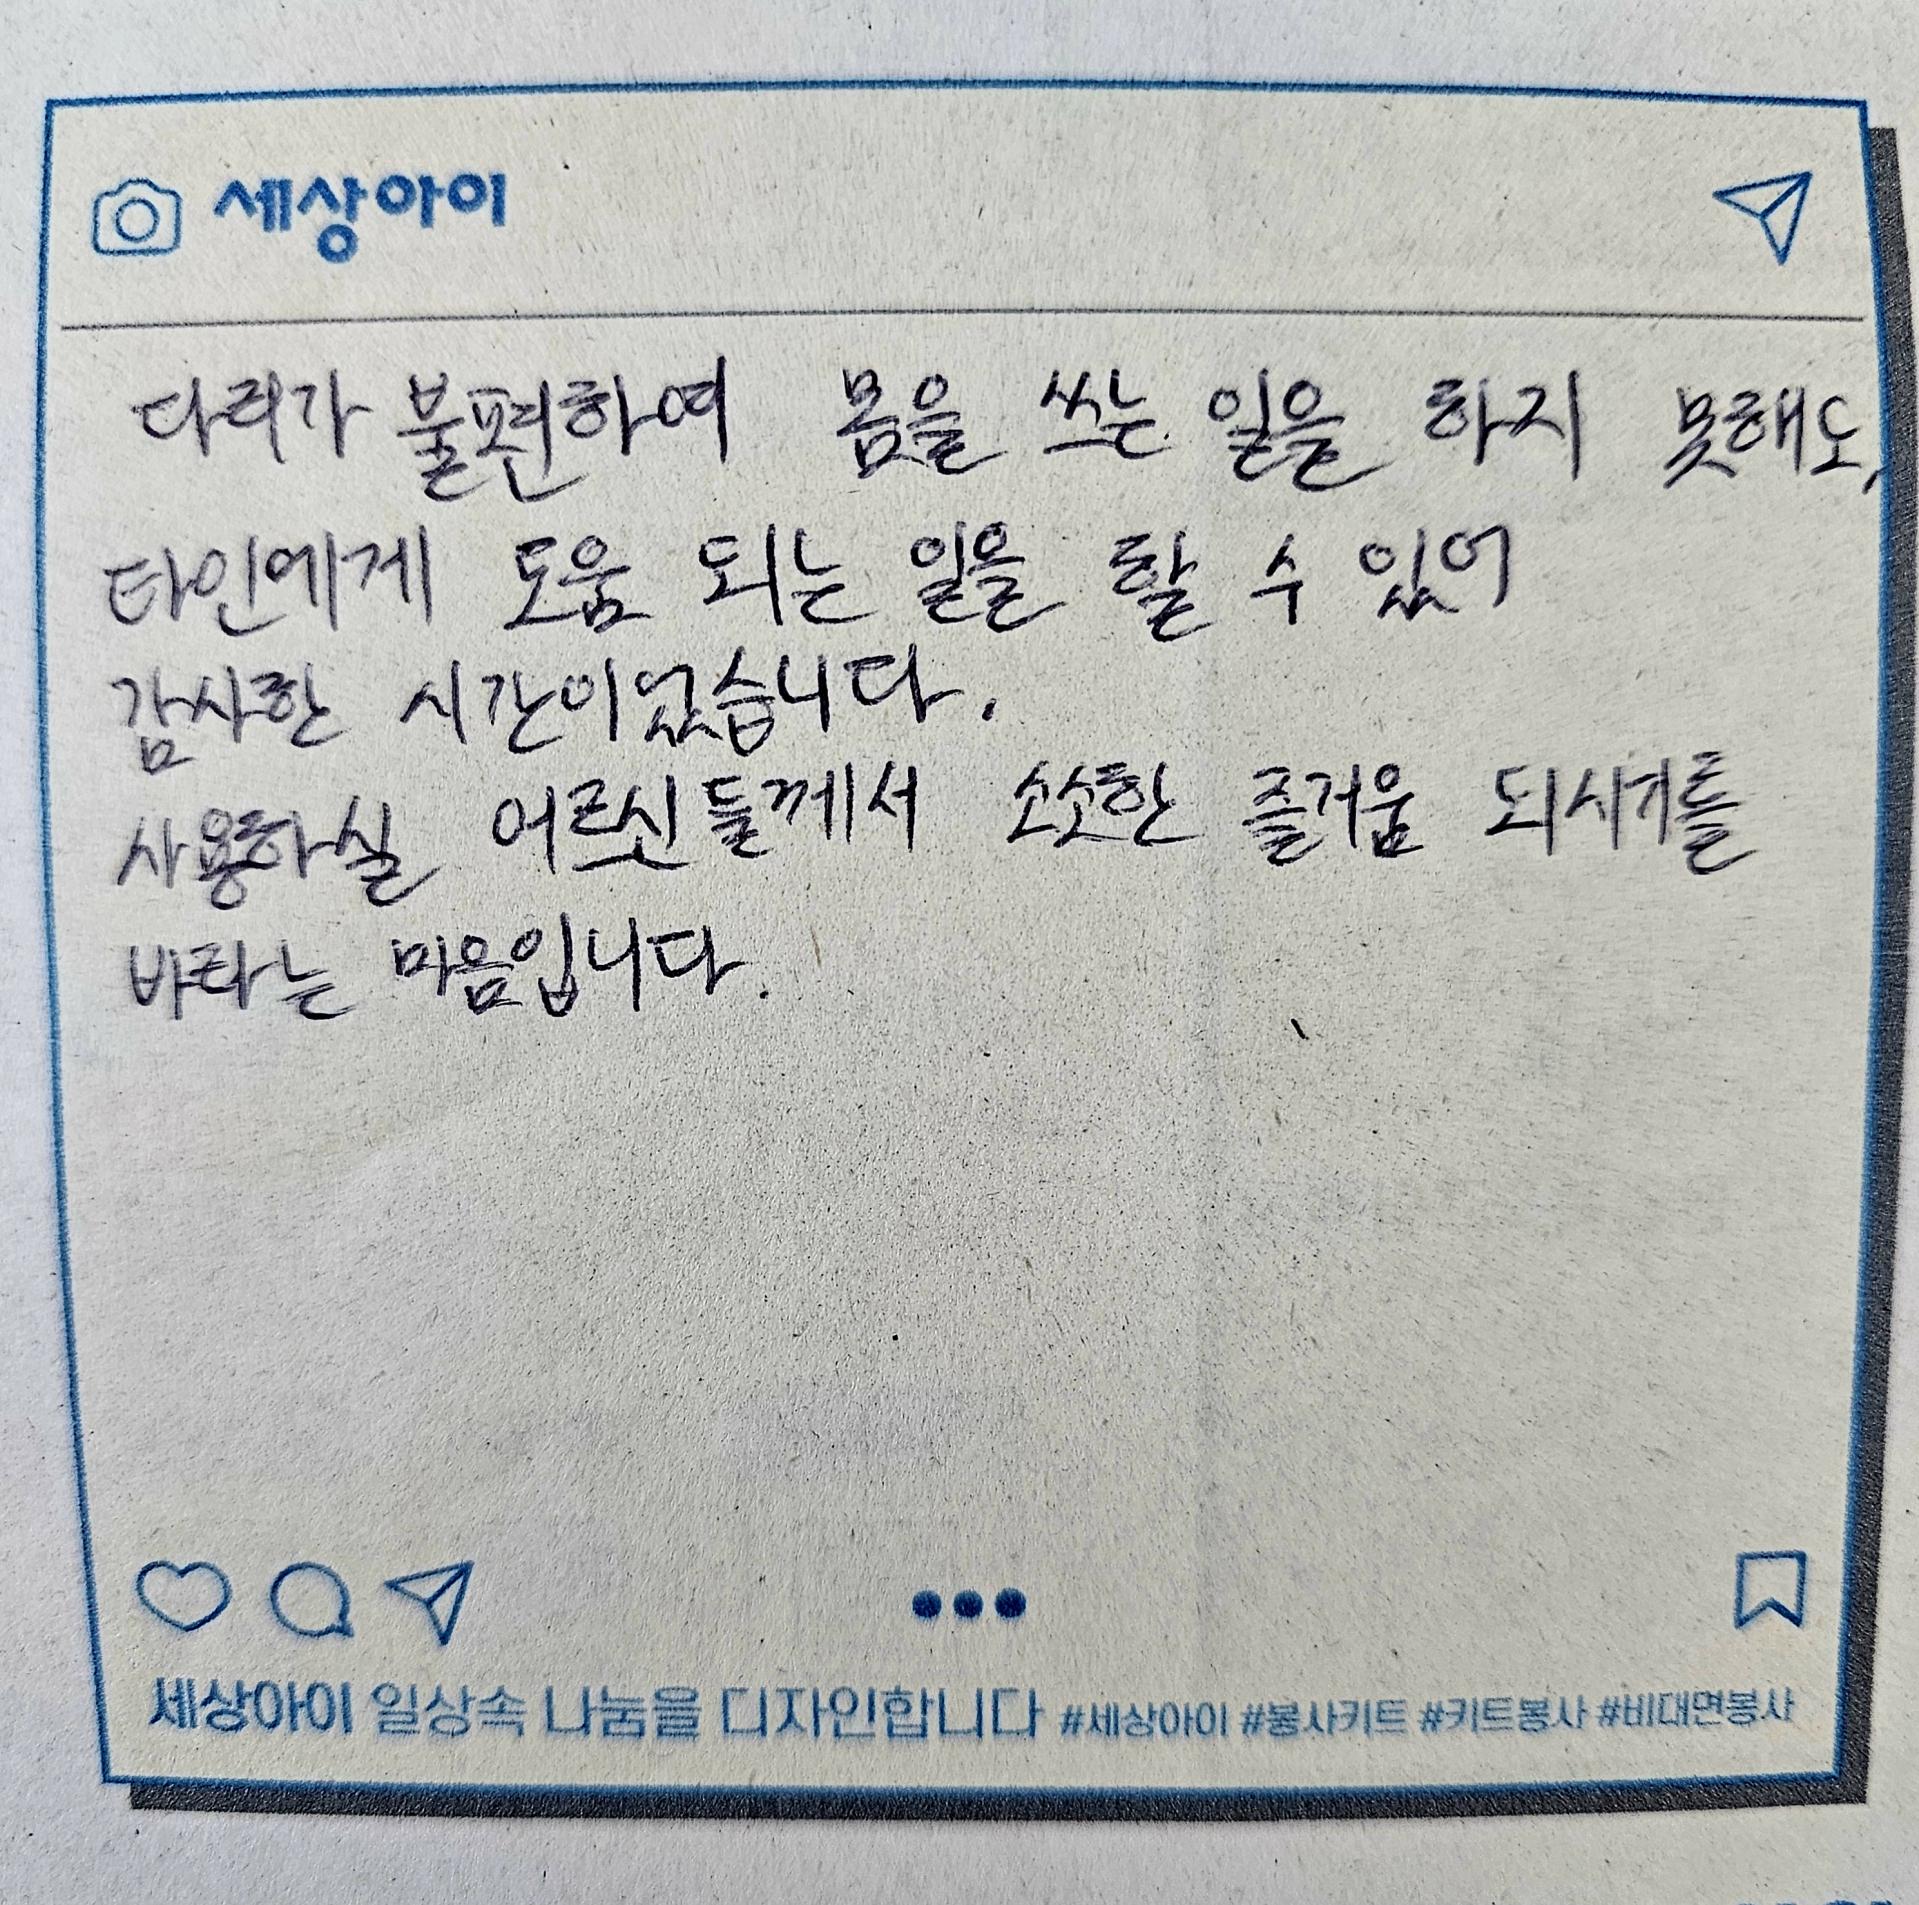 세상아이
다리가 불편하여 몸을 쓰는 일을 하지 못해도,
타인에게 도움 되는 일을 할 수 있어
감사한 시간이었습니다.
사용하실 어르신들께서 소소한 즐거움 되시기를
바라는 마음입니다.
세상아이 일상속 나눔을 디자인합니다 #세상아이 #봉사키트 #키트봉사 #비대면봉사